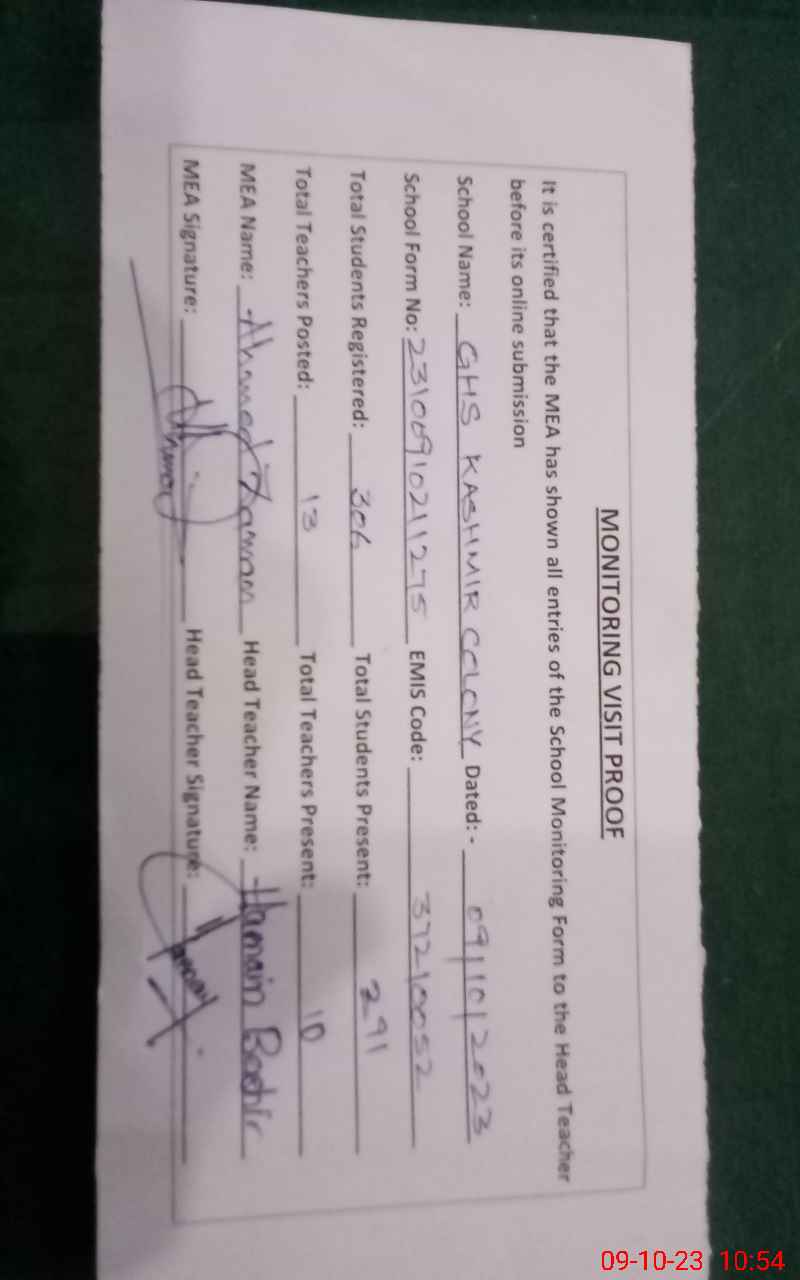 MONITORING VISIT PROOF
It is certified that the MEA has shown all entries of the School Monitoring Form to the Head Teacher
before its online submission
School Name: GHS KASHMIR COLONY Dated: - 09/10/2023
School Form No: EMIS Code: 37210052
Total Students Registered: 306 Total Students Present: 291
Total Teachers Posted: 13 Total Teachers Present: 10
MEA Name: Ahmed Head Teacher Name:
MEA Signature: Head Teacher Signature:
09-10-23 10:54